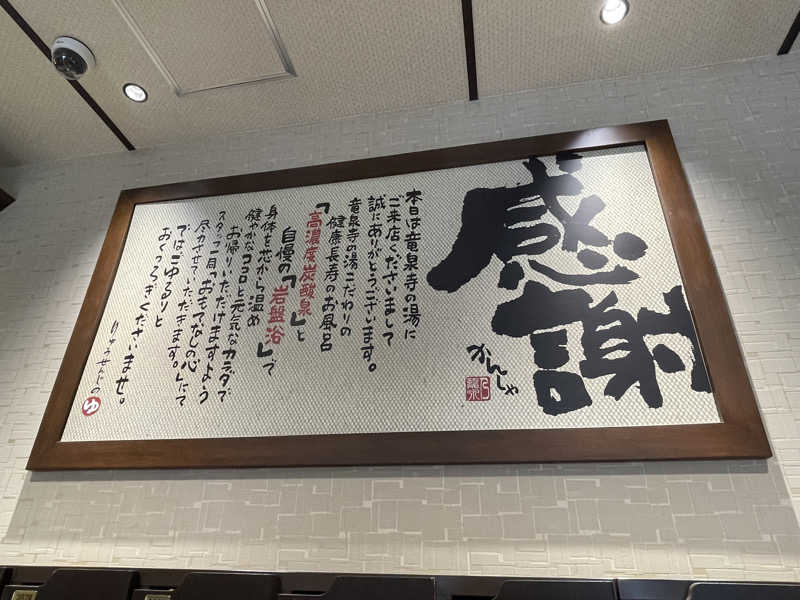 感謝
かんしゃ
本日は竜泉寺の湯に
ご来店くださいまして
誠にありがとうございます。
竜泉寺の湯こだわりの
健康長寿のお風呂
「高濃度炭酸泉」と
自慢の「岩盤浴」で
身体を芯から温め
健やかなココロと元気なカラダで
お帰りいただけますよう
スタッフ一同「おもてなしの心」にて
尽力させていただきます。
ではごゆるりと
おくつろぎくださいませ。
りゅうせんじの
ゆ